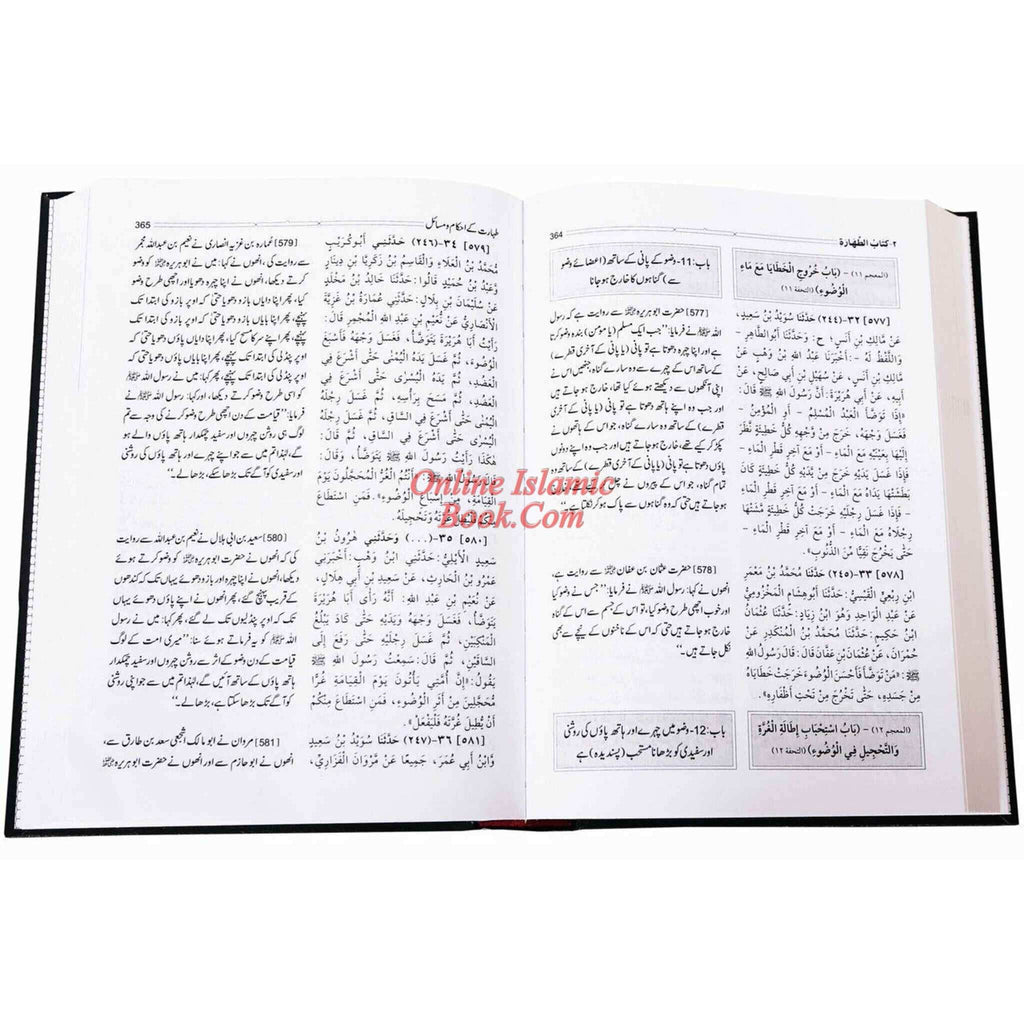 ٢-كتابُ الطَّهارة
364
(المعجم ١١) - (بَابُ خُرُوجِ الْخَطَايَا مَعَ مَاءِ
الْوُضُوءِ) (التحفة ١١)
[٥٧٧] ٣٢-(٢٤٤) حَدَّثَنَا سُوَيْدُ بْنُ سَعِيدٍ،
عَنْ مَالِكِ بْنِ أَنَسٍ؛ ح: وَحَدَّثَنَا أَبُو الطَّاهِرِ -
وَاللَّفْظُ لَهُ -: أَخْبَرَنَا عَبْدُ اللهِ بْنُ وَهْبٍ عَنْ
مَالِكِ بْنِ أَنَسٍ، عَنْ سُهَيْلِ بْنِ أَبِي صَالِحٍ، عَنْ
أَبِيهِ، عَنْ أَبِي هُرَيْرَةَ: أَنَّ رَسُولَ اللهِ ﷺ قَالَ:
«إِذَا تَوَضَّأَ الْعَبْدُ الْمُسْلِمُ - أَوِ الْمُؤْمِنُ -
فَغَسَلَ وَجْهَهُ، خَرَجَ مِنْ وَّجْهِهِ كُلُّ خَطِيئَةٍ نَّظَرَ
إِلَيْهَا بِعَيْنَيْهِ مَعَ الْمَاءِ - أَوْ مَعَ آخِرِ قَطْرِ الْمَاءِ -
فَإِذَا غَسَلَ يَدَيْهِ خَرَجَ مِنْ يَدَيْهِ كُلُّ خَطِيئَةٍ كَانَ
بَطَشَتْهَا يَدَاهُ مَعَ الْمَاءِ - أَوْ مَعَ آخِرِ قَطْرِ الْمَاءِ -
فَإِذَا غَسَلَ رِجْلَيْهِ خَرَجَتْ كُلُّ خَطِيئَةٍ مَّشَتْهَا
رِجْلَاهُ مَعَ الْمَاءِ - أَوْ مَعَ آخِرِ قَطْرِ الْمَاءِ -
حَتَّى يَخْرُجَ نَقِيًّا مِّنَ الذُّنُوبِ».
[٥٧٨] ٣٣-(٢٤٥) حَدَّثَنَا مُحَمَّدُ بْنُ مَعْمَرِ
ابْنِ رِبْعِيٍّ الْقَيْسِيُّ: حَدَّثَنَا أَبُو هِشَامٍ الْمَخْزُومِيُّ
عَنْ عَبْدِ الْوَاحِدِ وَهُوَ ابْنُ زِيَادٍ: حَدَّثَنَا عُثْمَانُ
ابْنُ حَكِيمٍ: حَدَّثَنَا مُحَمَّدُ بْنُ الْمُنْكَدِرِ عَنْ
حُمْرَانَ، عَنْ عُثْمَانَ بْنِ عَفَّانَ قَالَ: قَالَ رَسُولُ اللهِ
ﷺ: «مَنْ تَوَضَّأَ فَأَحْسَنَ الْوُضُوءَ خَرَجَتْ خَطَايَاهُ
مِنْ جَسَدِهِ، حَتَّى تَخْرُجَ مِنْ تَحْتِ أَظْفَارِهِ».
(المعجم ١٢) - (بَابُ اسْتِحْبَابِ إِطَالَةِ الْغُرَّةِ
وَالتَّحْجِيلِ فِي الْوُضُوءِ) (التحفة ١٢)
باب:11-وضو کے پانی کے ساتھ (اعضائے وضو
سے) گناہوں کا خارج ہو جانا
[577] حضرت ابو ہریرہ ؓ سے روایت ہے کہ رسول
اللہ ﷺ نے فرمایا: ’’جب ایک مسلم (یا مومن) بندہ وضو کرتا
ہے اور اپنا چہرہ دھوتا ہے تو پانی (یا پانی کے آخری قطرے)
کے ساتھ اس کے چہرے سے وہ سارے گناہ، جنھیں اس نے
اپنی آنکھوں سے دیکھتے ہوئے کیا تھا، خارج ہو جاتے ہیں
اور جب وہ اپنے ہاتھ دھوتا ہے تو پانی (یا پانی کے آخری
قطرے) کے ساتھ وہ سارے گناہ، جو اس کے ہاتھوں نے
پکڑ کر کیے تھے، خارج ہو جاتے ہیں اور جب وہ اپنے دونوں
پاؤں دھوتا ہے تو پانی (یا پانی کے آخری قطرے) کے ساتھ وہ
تمام گناہ، جو اس کے پیروں نے چل کر کیے تھے، خارج
ہو جاتے ہیں حتی کہ وہ گناہوں سے پاک ہو کر نکلتا ہے۔‘‘
[578] حضرت عثمان بن عفان ؓ سے روایت ہے،
انھوں نے کہا: رسول اللہ ﷺ نے فرمایا: ’’جس نے وضو کیا
اور خوب اچھی طرح وضو کیا، تو اس کے جسم سے اس کے گناہ
خارج ہو جاتے ہیں حتی کہ اس کے ناخنوں کے نیچے سے بھی
نکل جاتے ہیں۔‘‘
باب:12-وضو میں چہرے اور ہاتھ پاؤں کی روشنی
اور سفیدی کو بڑھانا مستحب (پسندیدہ) ہے
طہارت کے احکام و مسائل
365
[٥٧٩] ٣٤-(٢٤٦) حَدَّثَنِي أَبُو كُرَيْبٍ
مُحَمَّدُ بْنُ الْعَلَاءِ وَالْقَاسِمُ بْنُ زَكَرِيَّا بْنِ دِينَارٍ
وَعَبْدُ بْنُ حُمَيْدٍ قَالُوا: حَدَّثَنَا خَالِدُ بْنُ مَخْلَدٍ
عَنْ سُلَيْمَانَ بْنِ بِلَالٍ: حَدَّثَنِي عُمَارَةُ بْنُ غَزِيَّةَ
الْأَنْصَارِيُّ عَنْ نُعَيْمِ بْنِ عَبْدِ اللهِ الْمُجْمِرِ قَالَ:
رَأَيْتُ أَبَا هُرَيْرَةَ يَتَوَضَّأُ، فَغَسَلَ وَجْهَهُ فَأَسْبَغَ
الْوُضُوءَ، ثُمَّ غَسَلَ يَدَهُ الْيُمْنَى حَتَّى أَشْرَعَ فِي
الْعَضُدِ، ثُمَّ يَدَهُ الْيُسْرَى حَتَّى أَشْرَعَ فِي
الْعَضُدِ، ثُمَّ مَسَحَ بِرَأْسِهِ، ثُمَّ غَسَلَ رِجْلَهُ
الْيُمْنَى حَتَّى أَشْرَعَ فِي السَّاقِ، ثُمَّ غَسَلَ رِجْلَهُ
الْيُسْرَى حَتَّى أَشْرَعَ فِي السَّاقِ، ثُمَّ قَالَ:
هٰكَذَا رَأَيْتُ رَسُولَ اللهِ ﷺ يَتَوَضَّأُ، وَقَالَ:
قَالَ رَسُولُ اللهِ ﷺ: «أَنْتُمُ الْغُرُّ الْمُحَجَّلُونَ يَوْمَ
الْقِيَامَةِ، مِنْ إِسْبَاغِ الْوُضُوءِ، فَمَنِ اسْتَطَاعَ
مِنْكُمْ فَلْيُطِلْ غُرَّتَهُ وَتَحْجِيلَهُ».
[٥٨٠] ٣٥-(...) وَحَدَّثَنِي هٰرُونُ بْنُ
سَعِيدٍ الْأَيْلِيُّ: حَدَّثَنَا ابْنُ وَهْبٍ: أَخْبَرَنِي
عَمْرُو بْنُ الْحَارِثِ، عَنْ سَعِيدِ بْنِ أَبِي هِلَالٍ،
عَنْ نُعَيْمِ بْنِ عَبْدِ اللهِ: أَنَّهُ رَأَى أَبَا هُرَيْرَةَ
يَتَوَضَّأُ، فَغَسَلَ وَجْهَهُ وَيَدَيْهِ حَتَّى كَادَ يَبْلُغُ
الْمَنْكِبَيْنِ، ثُمَّ غَسَلَ رِجْلَيْهِ حَتَّى رَفَعَ إِلَى
السَّاقَيْنِ، ثُمَّ قَالَ: سَمِعْتُ رَسُولَ اللهِ ﷺ
يَقُولُ: «إِنَّ أُمَّتِي يَأْتُونَ يَوْمَ الْقِيَامَةِ غُرًّا
مُّحَجَّلِينَ مِنْ أَثَرِ الْوُضُوءِ، فَمَنِ اسْتَطَاعَ مِنْكُمْ
أَنْ يُطِيلَ غُرَّتَهُ فَلْيَفْعَلْ».
[٥٨١] ٣٦-(٢٤٧) حَدَّثَنَا سُوَيْدُ بْنُ سَعِيدٍ
وَابْنُ أَبِي عُمَرَ، جَمِيعًا عَنْ مَرْوَانَ الْفَزَارِيِّ،
[579] عمارہ بن غزیہ انصاری نے نعیم بن عبداللہ مجمر
سے روایت کی، انھوں نے کہا: میں نے ابو ہریرہ ؓ کو وضو
کرتے دیکھا، انھوں نے اپنا چہرہ دھویا اور اچھی طرح وضو
کیا، پھر اپنا دایاں بازو دھویا حتی کہ اوپر بازو کی ابتدا تک
پہنچے، پھر اپنا بایاں بازو دھویا حتی کہ اوپر بازو کی ابتدا تک
پہنچے، پھر اپنے سر کا مسح کیا، پھر اپنا دایاں پاؤں دھویا حتی کہ
اوپر پنڈلی کی ابتدا تک پہنچے، پھر اپنا بایاں پاؤں دھویا حتی کہ
اوپر پنڈلی کی ابتدا تک پہنچے، پھر کہا: میں نے رسول اللہ ﷺ
کو اسی طرح وضو کرتے دیکھا، اور کہا: رسول اللہ ﷺ نے
فرمایا: ’’قیامت کے دن اچھی طرح وضو کرنے کی وجہ سے تم
لوگ ہی روشن چہروں اور سفید چمکدار ہاتھ پاؤں والے ہو
گے، لہٰذا تم میں سے جو اپنے چہرے اور ہاتھ پاؤں کی روشنی
اور سفیدی کو آگے تک بڑھا سکے، بڑھا لے۔‘‘
[580] سعید بن ابی ہلال نے نعیم بن عبداللہ سے روایت
کی کہ انھوں نے حضرت ابو ہریرہ ؓ کو وضو کرتے دیکھا،
انھوں نے اپنا چہرہ اور بازو دھوئے یہاں تک کہ کندھوں
کے قریب پہنچ گئے، پھر انھوں نے اپنے پاؤں دھوئے یہاں
تک کہ اوپر پنڈلیوں تک لے گئے، پھر کہا: میں نے رسول
اللہ ﷺ کو یہ فرماتے ہوئے سنا: ’’میری امت کے لوگ
قیامت کے دن وضو کے اثر سے روشن چہروں اور سفید چمکدار
ہاتھ پاؤں کے ساتھ آئیں گے، لہٰذا تم میں سے جو اپنی روشنی
کو آگے تک بڑھا سکتا ہے، بڑھا لے۔‘‘
[581] مروان نے ابو مالک اشجعی سعد بن طارق سے،
انھوں نے ابو حازم سے اور انھوں نے حضرت ابو ہریرہ ؓ
Online Islamic
Book.Com